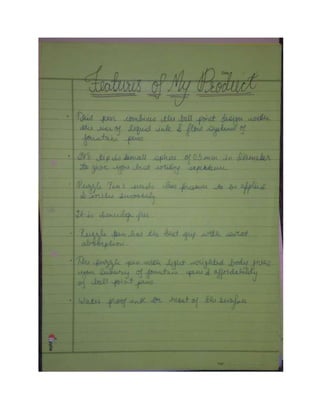 Features of My Product
This pen combines the ball point design with
the use of liquid ink & flow system of
fountain pens
It's tip is small sphere of 0.5 mm in diameter
to give you best writing experience
Puzzle Pen's needs less pressure to be applied
& writes smoothly
It is smudge free
Puzzle pen has the best grip with sweat
absorption
The puzzle pen with light weighted body gives
you luxury of fountain pens & affordability
of ball point pens
Water proof ink on most of the surfaces